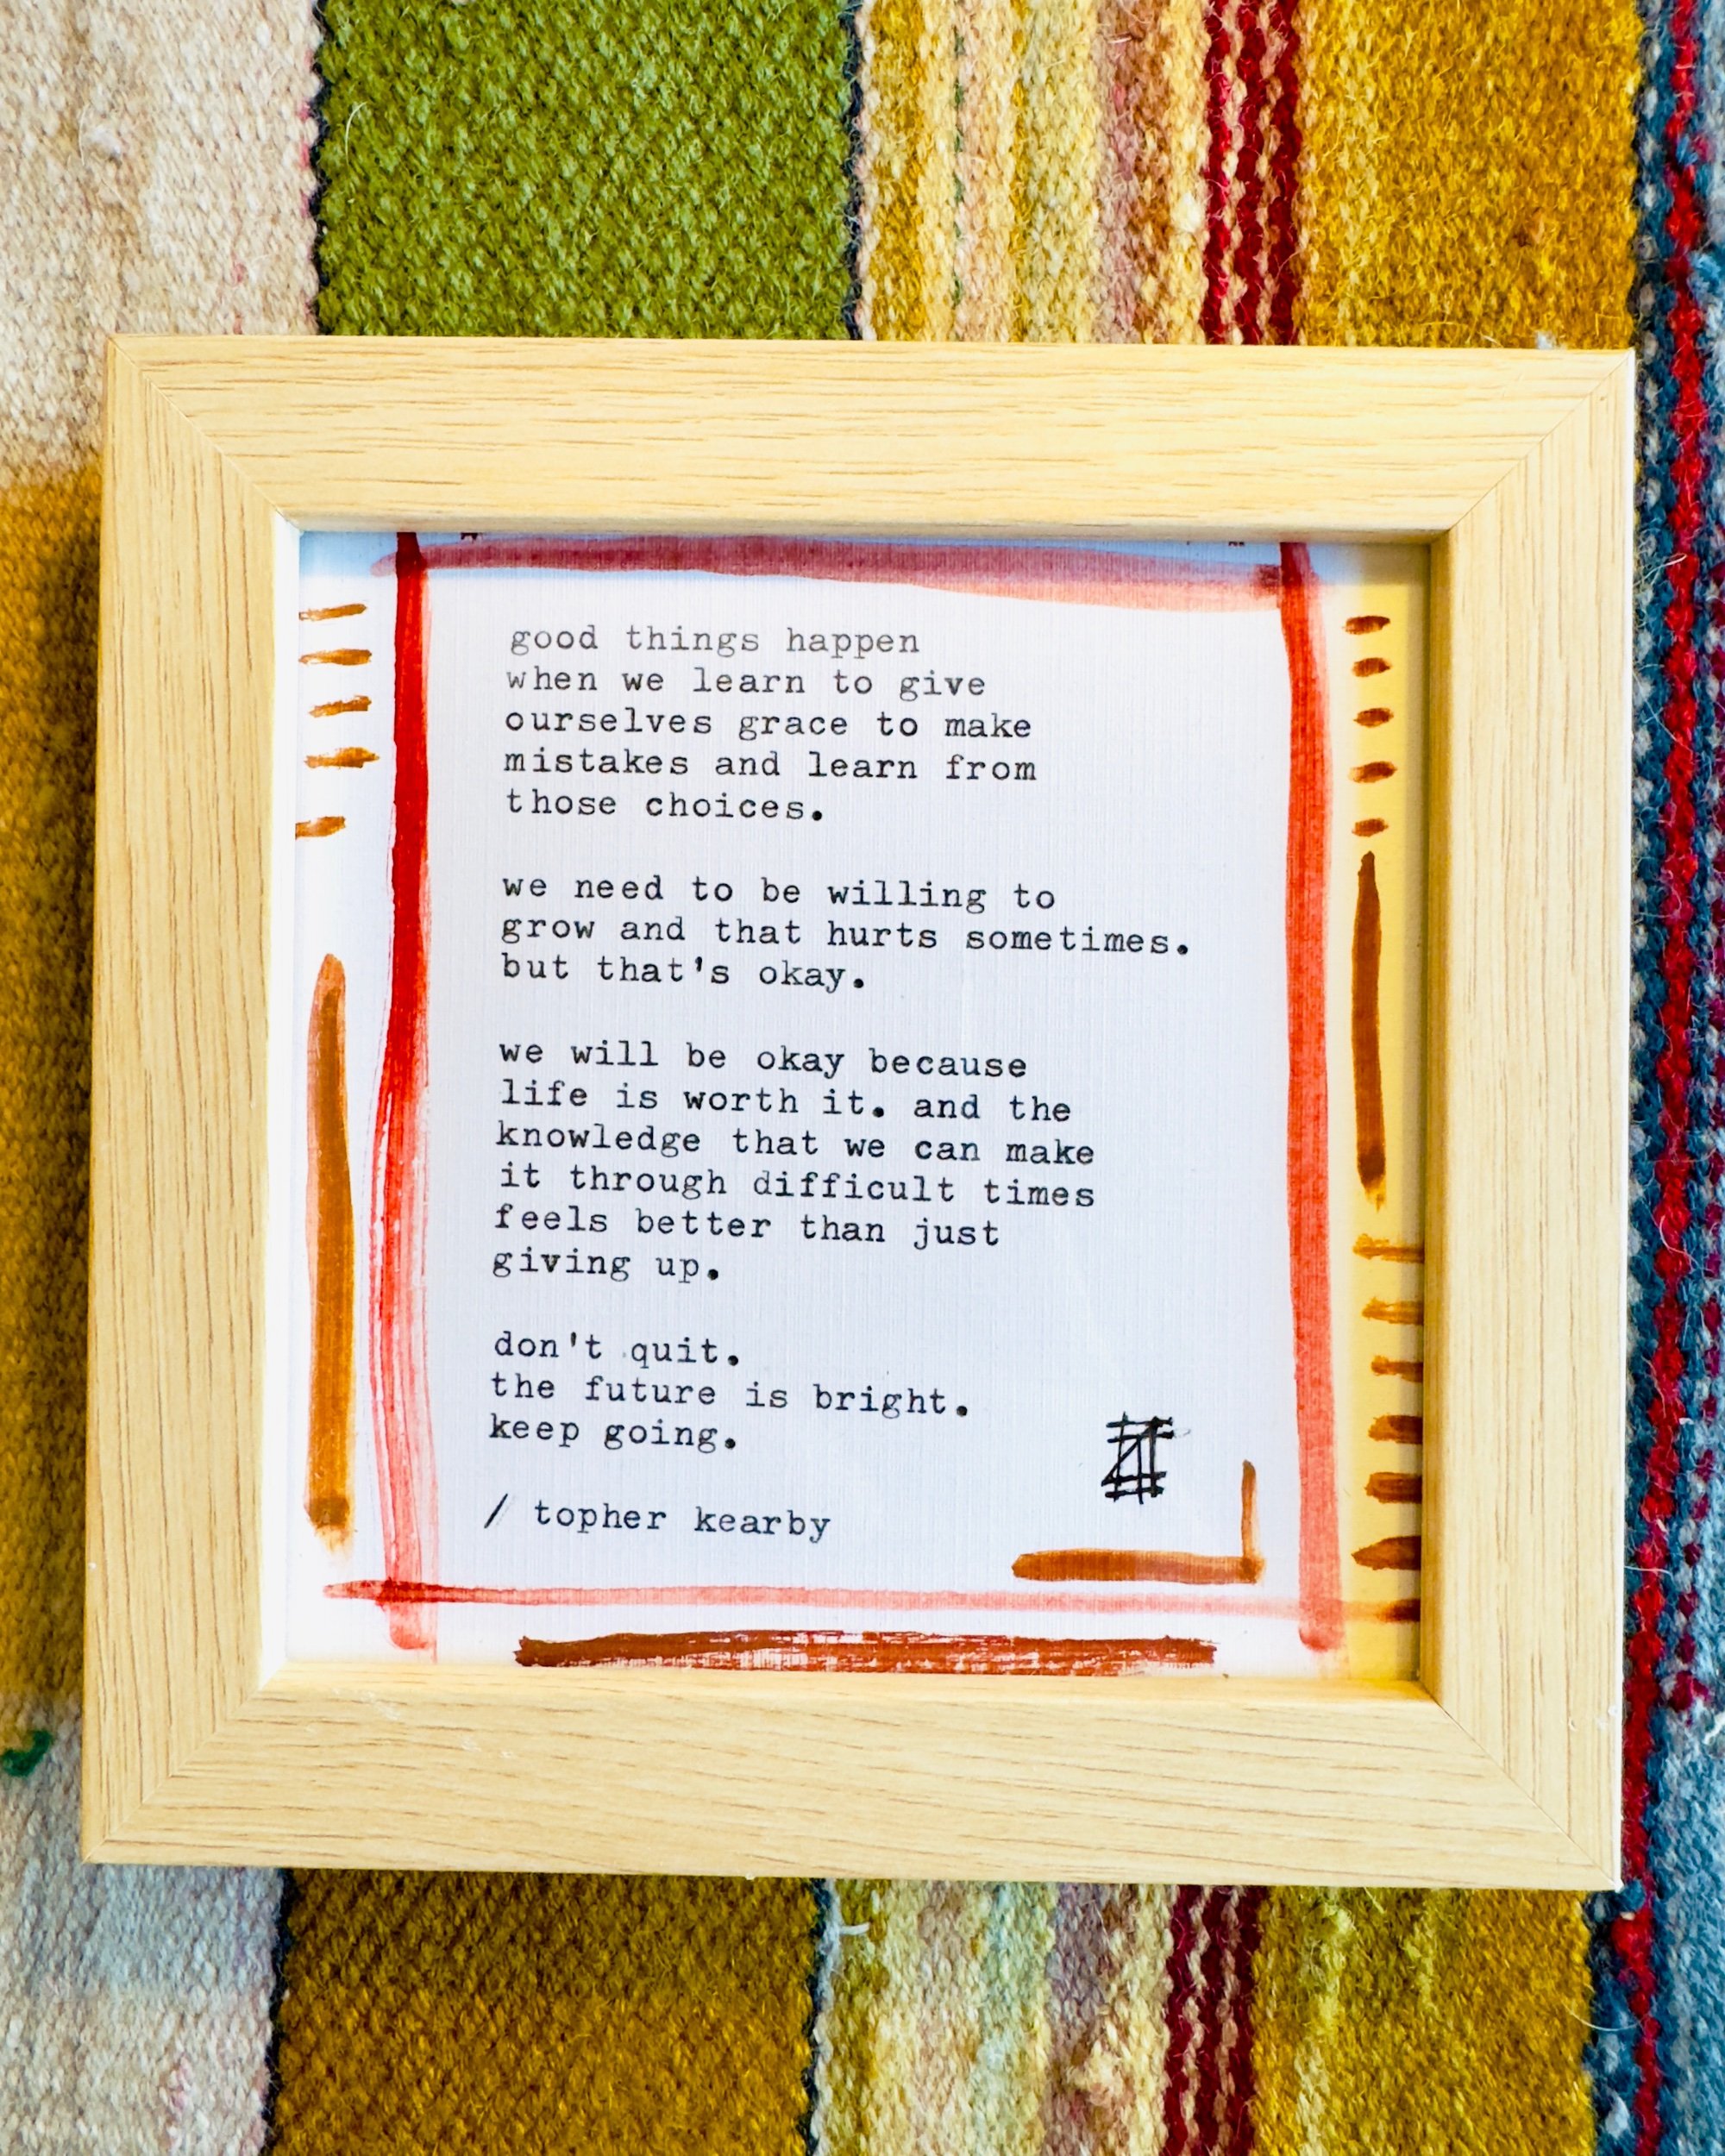 good things happen
when we learn to give
ourselves grace to make
mistakes and learn from
those choices.
we need to be willing to
grow and that hurts sometimes.
but that's okay.
we will be okay because
life is worth it. and the
knowledge that we can make
it through difficult times
feels better than just
giving up.
don't quit.
the future is bright.
keep going.
/ topher kearby